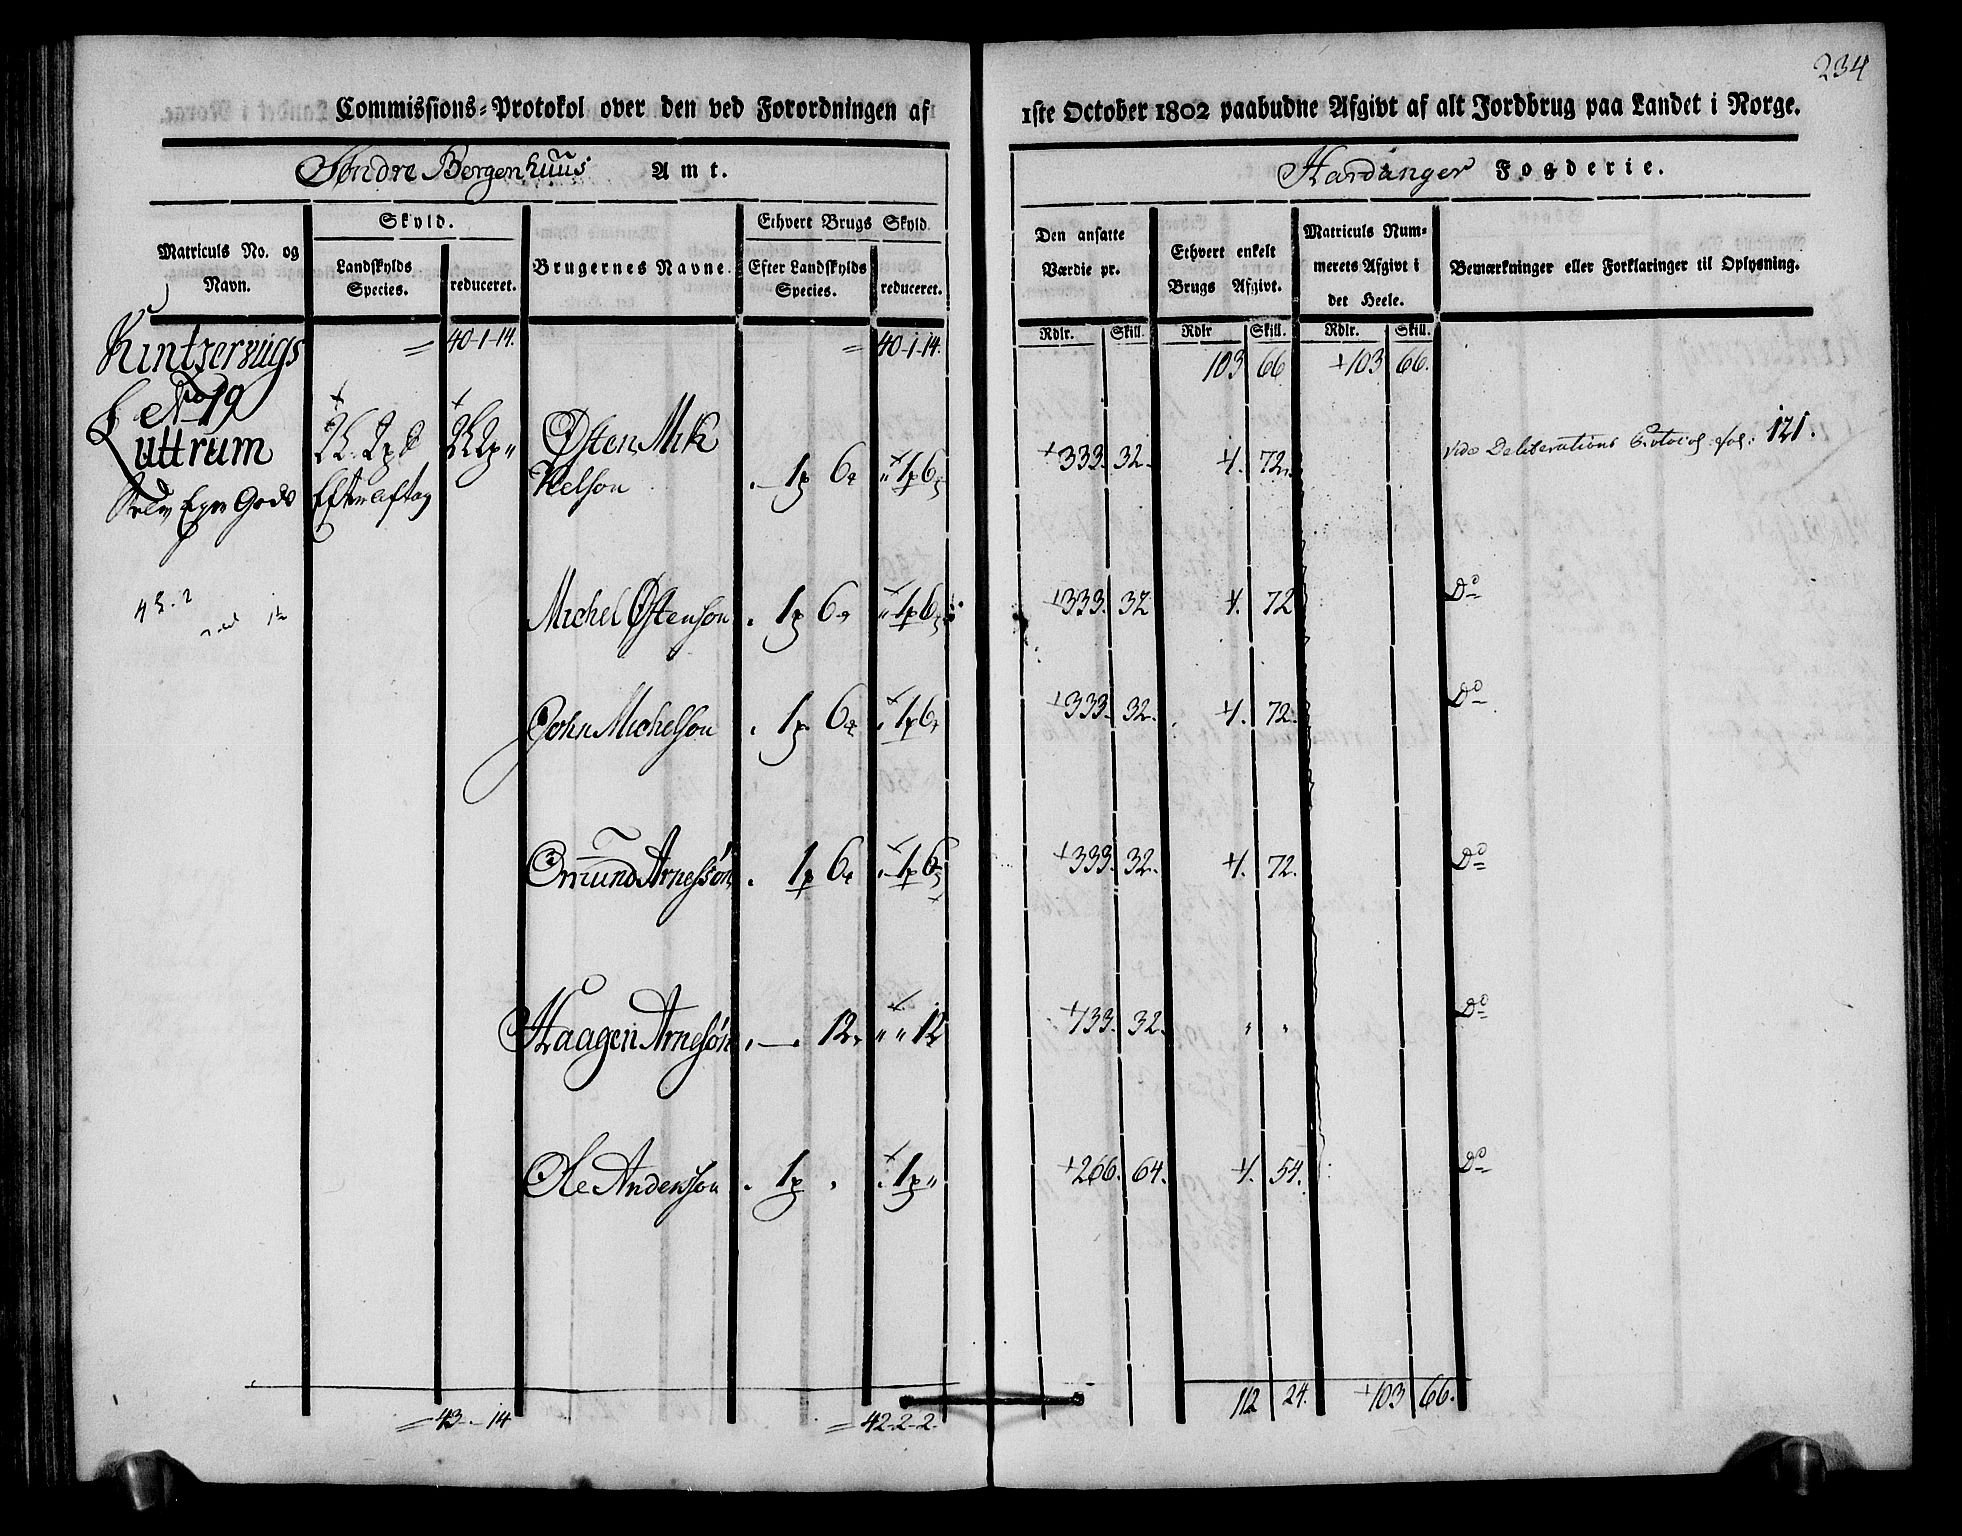 234
Commissions-Protokol over den ved Forordningen af 1ste October 1802 paabudne Afgivt af alt Jordbrug paa Landet i Norge.
Søndre Bergenhuus Amt. Hardanger Fogderie.
Matriculs No. og Navn.
Skyld.
Landskylds Species.
reduceret.
Brugernes Navne.
Ethvert Brugs Skyld.
Efter Landskylds Species.
reduceret.
Den ansatte Værdie pr.
Ethvert enkelt Brugs Afgivt.
Matriculs Nummerets Afgivt i det Heele.
Bemærkninger eller Forklaringer til Oplysning.
Rdlr. Skill. Rdlr Skill. Rdlr. Skill.
Kintzervigs = 40-1-14. = 40-1-14. 103 66 +103 66.
No 19
Luttrum Østen Mik
Kelson . 1p 6 " 1p 6 +333. 32. 4. 72. vide Deliberations Protocol fol: 121.
Selv Eyer Gods Efter aftag
Michel Østenson . 1p 6 " 1p 6 +333. 32 4. 72 Do
John Michelson . 1p 6 . 1p 6 +333. 32. 4. 72. Do
Omund Arnessøn . 1p 6 . 1p 6 +333. 32. 4. 72. Do
Haagen Arnesøn . — . 12 " " 12 +133. 32. " " Do
Ole Anderson . 1p . . 1p " +266. 64. 4. 54. Do
= 43. - 14 = 42-2-2. 112 24. +103 66.